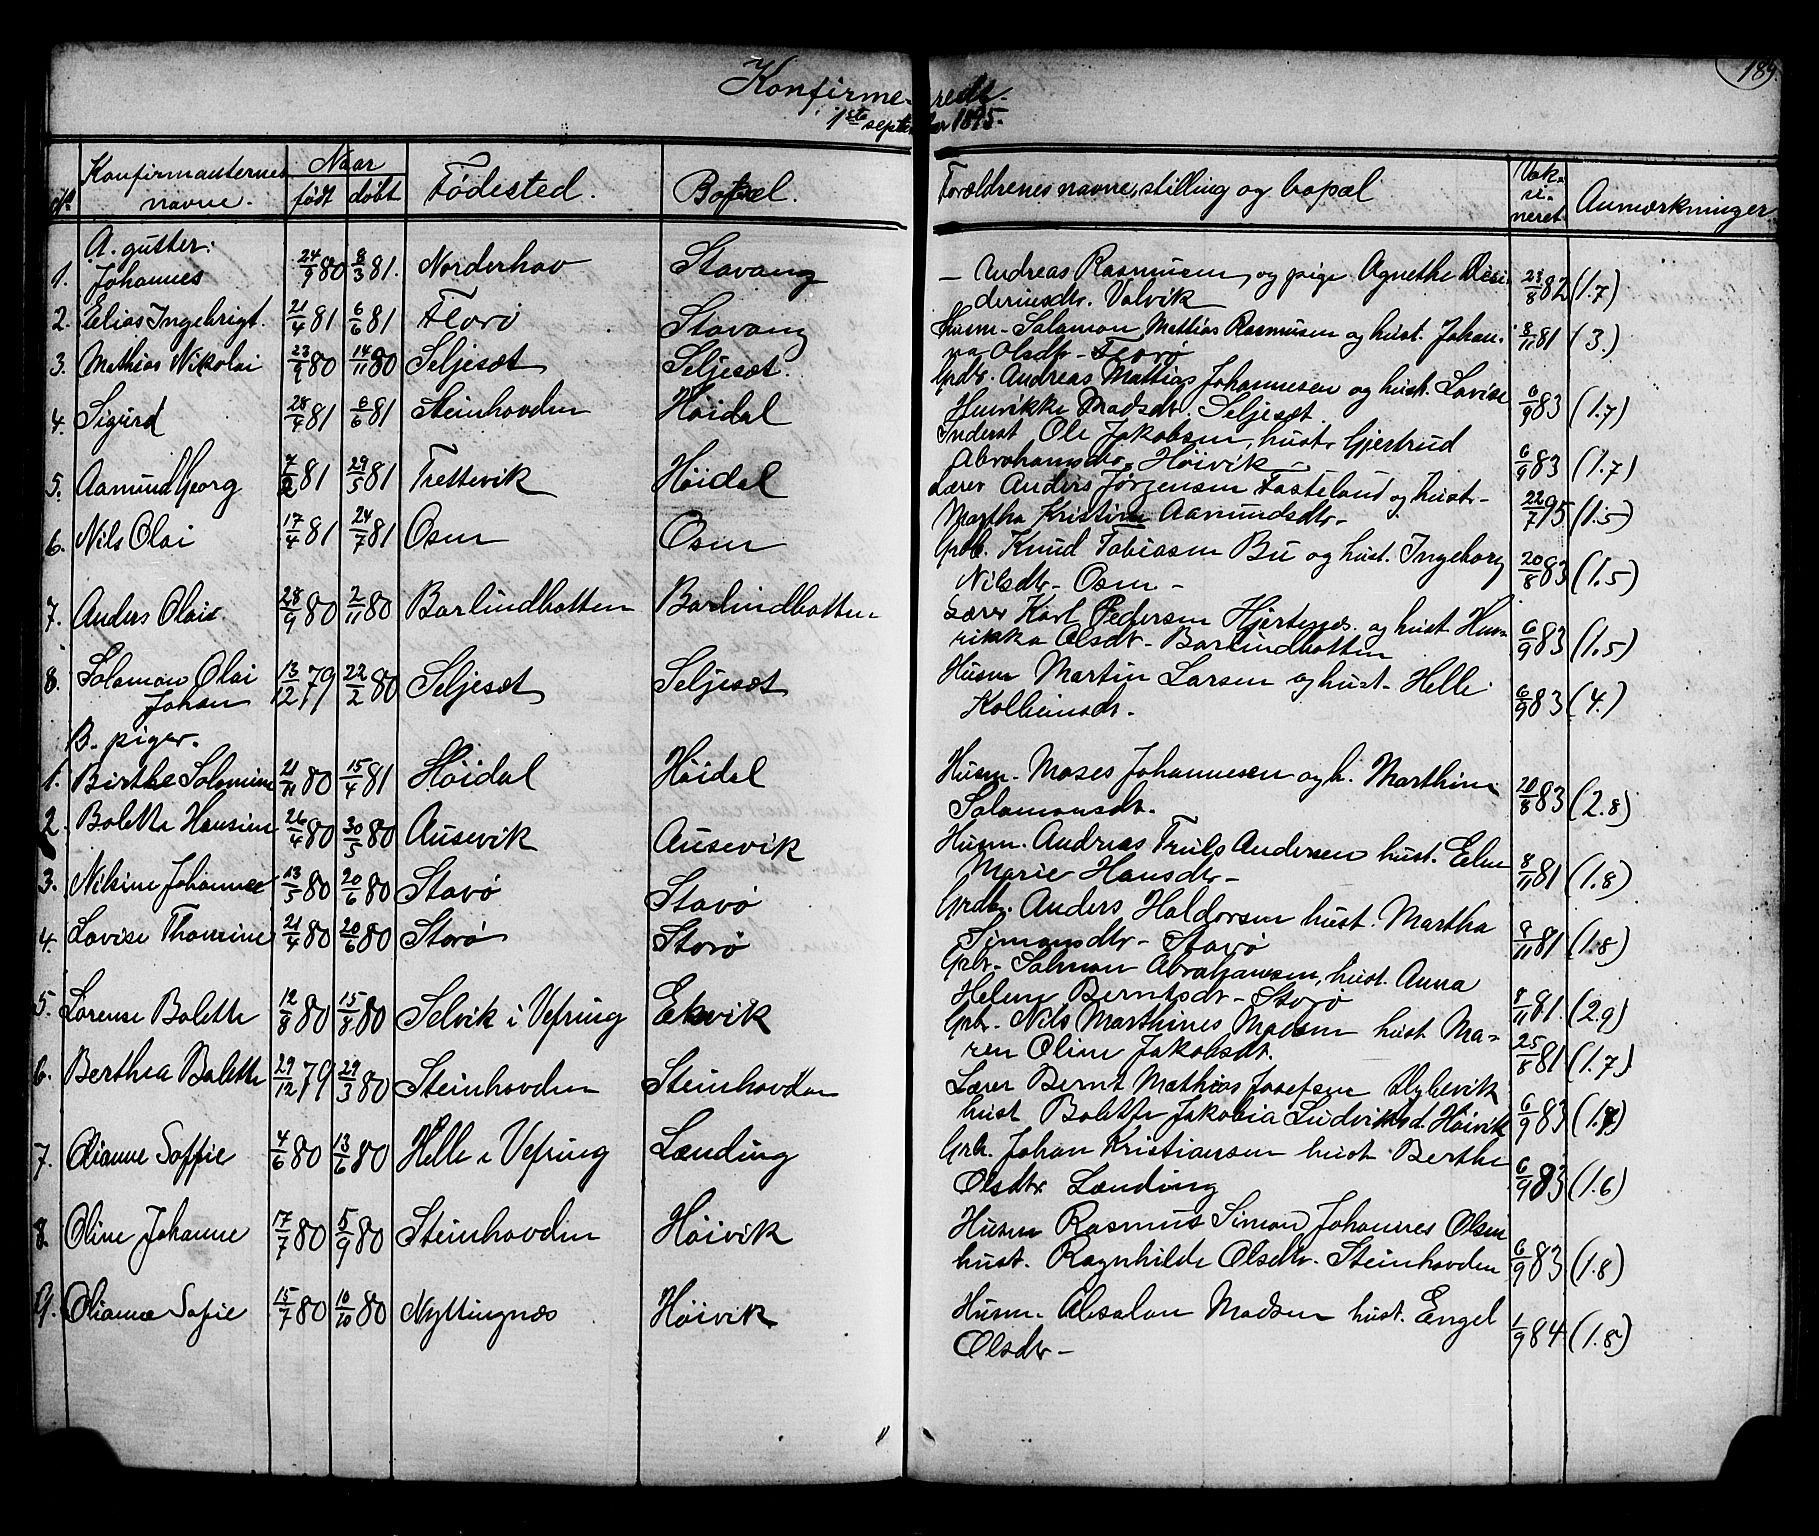 Konfirmerede
1ste september 1895.
184.
No Konfirmanternes navne. Naar født døbt Fødested. Bopæl. Forældrenes navne, stilling og bopæl Vaksineret Anmærkninger.
A. gutter:
1. Johannes 24/9 80 8/3 81. Norderhov Stavang - Andreas Rasmusen, og pige Agnethe Desi- 23/8 82 (1.7)
deriusdtr. Valvik
2. Elias Ingebrigt. 21/4 81 6/6 81 Florø Stavang Husm- Salamon Mattias Rasmusen og hust. Johan- 8/11 81 (3.)
na Olsdtr - Florø
3. Mathias Nikolai 23/9 80 14/11 80 Seljesæt Seljesæt. Grdbr. Andreas Mattias Johannesen og hust. Lovise 6/9 83 (1.7)
Henrikke Madsdtr. Seljesæt
4. Sigurd 28/4 81 6/6 81 Steinhovden Høidal Inderst Ole Jakobsen, hust. Gjertrud 6/9 83 (1.7)
Abrahamsdtr. Høivik -
5. Aamund Georg 7/2 81 29/5 81 Trettevik Høidal Lærer Anders Jørgensen Fasteland og hustr- 22/7 95 (1.5)
Martha Kristine Aamundsdtr-
6. Nils Olai 17/4 81 24/7 81 Osen Osen Grdb. Knud Tobiasen Bu og hust. Ingeborg 20/8 83 (1.5)
Nilsdtr- Osen -
7. Anders Olai 28/9 80 2/11 80 Barlindbotten Barlindbotten Lærer Karl Pedersen Hjertenæs. og hust Hen-
rikka Olsdtr - Barlindbotten 6/9 83 (1.5)
8. Solomon Olai 13/12 79 22/2 80 Seljesæt Seljesæt Husm Martin Larsen og hust- Helle
Johan Kolbeinsdtr. 6/9 83 (4.)
B. piger.
1. Birthe Solomine 21/11 80 15/4 81 Høidal Høidal Husm- Moses Johannesen og h. Marthine 20/8 83 (2.8)
Salamonsdtr.
2. Bolette Hansine 26/4 80 30/5 80 Ausevik Ausevik Husm. Andreas Truls Andersen hust. Elen 8/11 81 (1.8)
Marie Hansdtr-
3. Nilsine Johannee 13/5 80 20/6 80 Stavø Stavø Grdbr. Anders Haldorsen hust. Martha
Simonsdtr- Stavø 8/11 81 (1.8)
4. Lovise Thomine 21/4 80 20/6 80 Storø Storø Gbr- Salmon Abrahamsen, hust. Anna
Helene Berntsdtr - Storø 8/11 81. (2.9)
5. Lorense Bolette 12/8 80 15/8 80 Selvik i Vefring Ekevik Gbr- Nils Marthines Madsen hust Ma-
ren Oline Jakobsdt. 25/8 81 (1.7)
6. Berthea Bolette 29/12 79 29/3 80 Steinhovden Steinhovden Lærer Bernt Mathias Josefsen Nybevik
hust Bolette Jakobia Ludviksd. Høivik 6/9 83
7. Olianne Soffie 4/6 80 13/6 80 Helle i Vefring Lænding Gbr. Johan Kristiansen hust. Berthe
Olsdtr Lænding 6/9 83 (1.6)
8. Oline Johanne 17/7 80 5/9 80 Steinhovden Høivik Husm Rasmus Simon Johannes Olsen
hust. Ragnhilde Olsdtr. Steinhovden 6/9 83 (1.8)
9. Olianna Sofie 15/7 80 10/10 80 Nyttingnæs Høivik Husm. Absalon Madsen hust. Engel
Olsdtr - 1/9 84 (1.8)